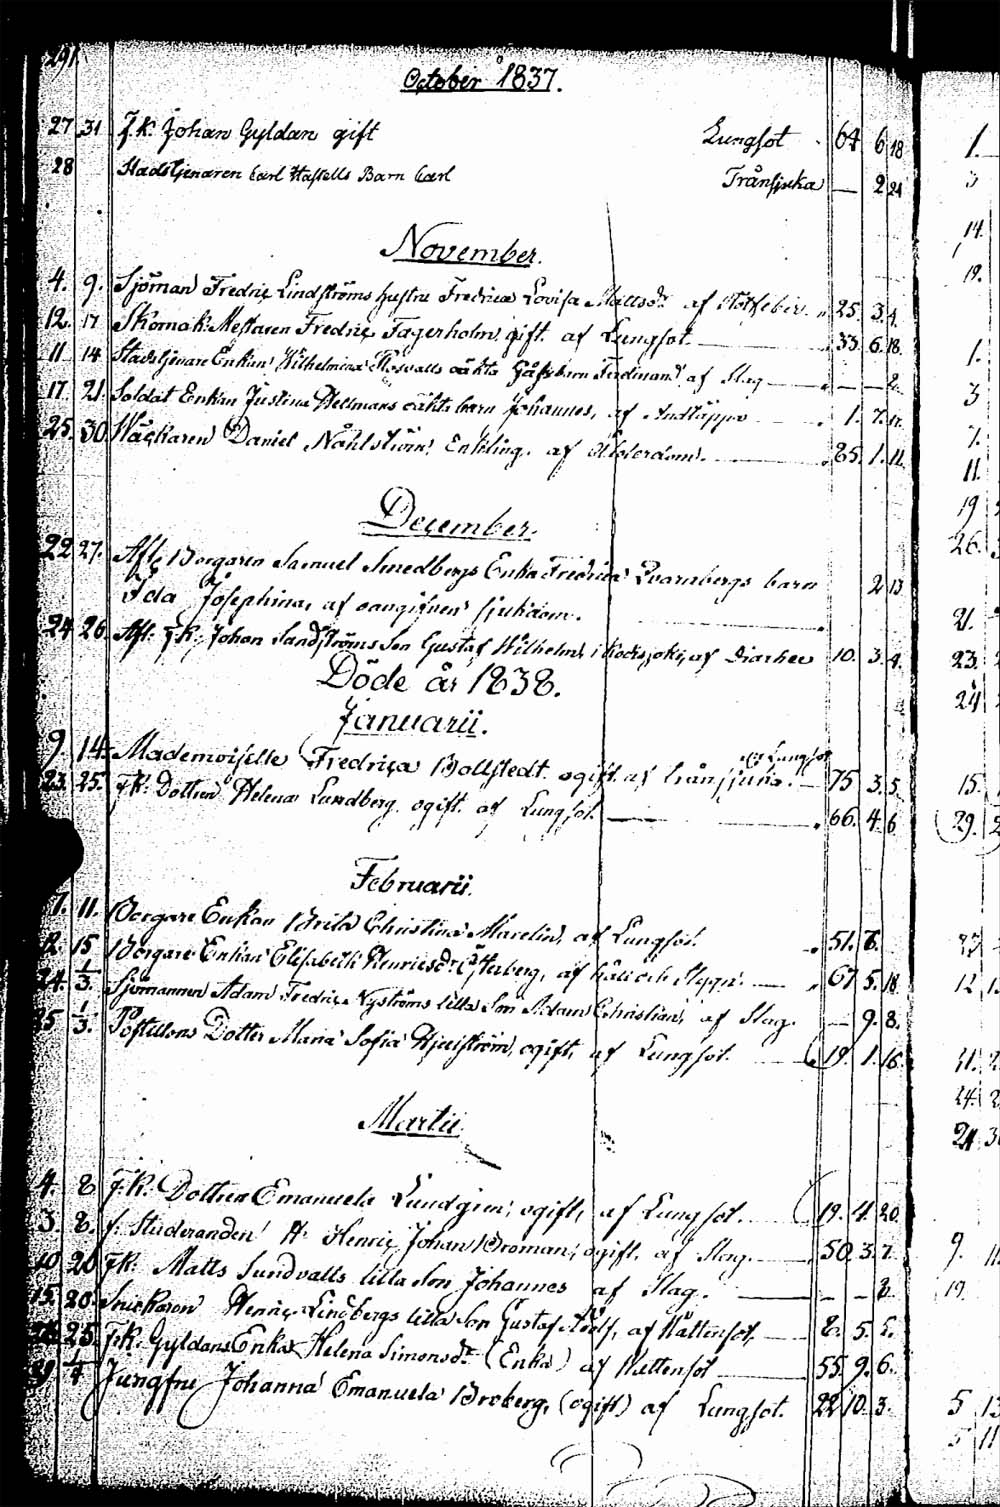 291.
October 1837.
27 31 F.K. Johan Gyldan gift Lungsot 64 6 18
28 Stadstjenaren Carl Hassells Barn Carl Trånsjuka — 2 24
November.
4. 9. Sjöman Fredric Lindströms hustru Fredrica Lovisa Mattsdr af 25. 3. 4.
12. 17 Skomak: Mästaren Fredric Fagerholm, gift. af Lungsot. 33 6. 18.
11 14 Stadstjenare Enkan Wilhelmina Rosvalls oäkta barn Ferdinand af Slag — — 2.
17 21. Soldat Enkan Justina Hellmans oäkta barn Johannes, af Andtäppa 1. 7. 17.
25. 30 Wäckaren Daniel Nählström Enkling. af Ålderdom. 85. 1. 11.
December.
22 27. Afl. Borgaren Samuel Smedbergs Enka Fredrica Qvarnbergs barn 2 13
Ida Josephina, af oangifven sjukdom.
24 26. Afl. F.K. Johan Sandströms Son Gustaf Wilhelm, i af Diarhee 10. 3. 4.
Döde år 1838.
Januarii.
9 14. Mademoiselle Fredrica Bollstedt. ogift. af trånsjuka. el. Lungsot 75 3. 5.
23. 25. F.K. Dottren Helena Lundberg. ogift. af Lungsot. 66. 4. 6
Februarii.
7. 11. Borgare Enkan Brita Christina Marelin, af Lungsot. 51. 6.
12. 15 Borgare Enkan Elisabeth Henricsdr Österberg, af håll och Stygn. 67 5. 18
24. 1/3. Sjömannen Adam Fredric Nyströms lilla Son Adam Christian, af Slag. — 9. 8.
25 1/3. Postillons Dotter Maria Sofia Hjulström, ogift, af Lungsot. 19. 1. 16.
Martii.
4. 8 F.K. Dottren Emanuela Lundgren, ogift, af Lungsot. 19. 4. 20
3. 8. f. Studeranden Hr Henric Johan Broman, ogift. af Slag. 50. 3. 7.
10 20 F.K. Matts Sundvalls lilla Son Johannes af Slag. — — 2.
15. 20. Snickaren Henric Lindbergs lilla Son Gustaf Adolf, af Wattensot, 8. 5. 2.
25. F.K. Gyldans Enka Helena Simonsdr (Enka) af Wattensot 55. 9. 6.
29 1/4 Jungfru Johanna Emanuela Broberg, (ogift) af Lungsot. 22 10. 3.